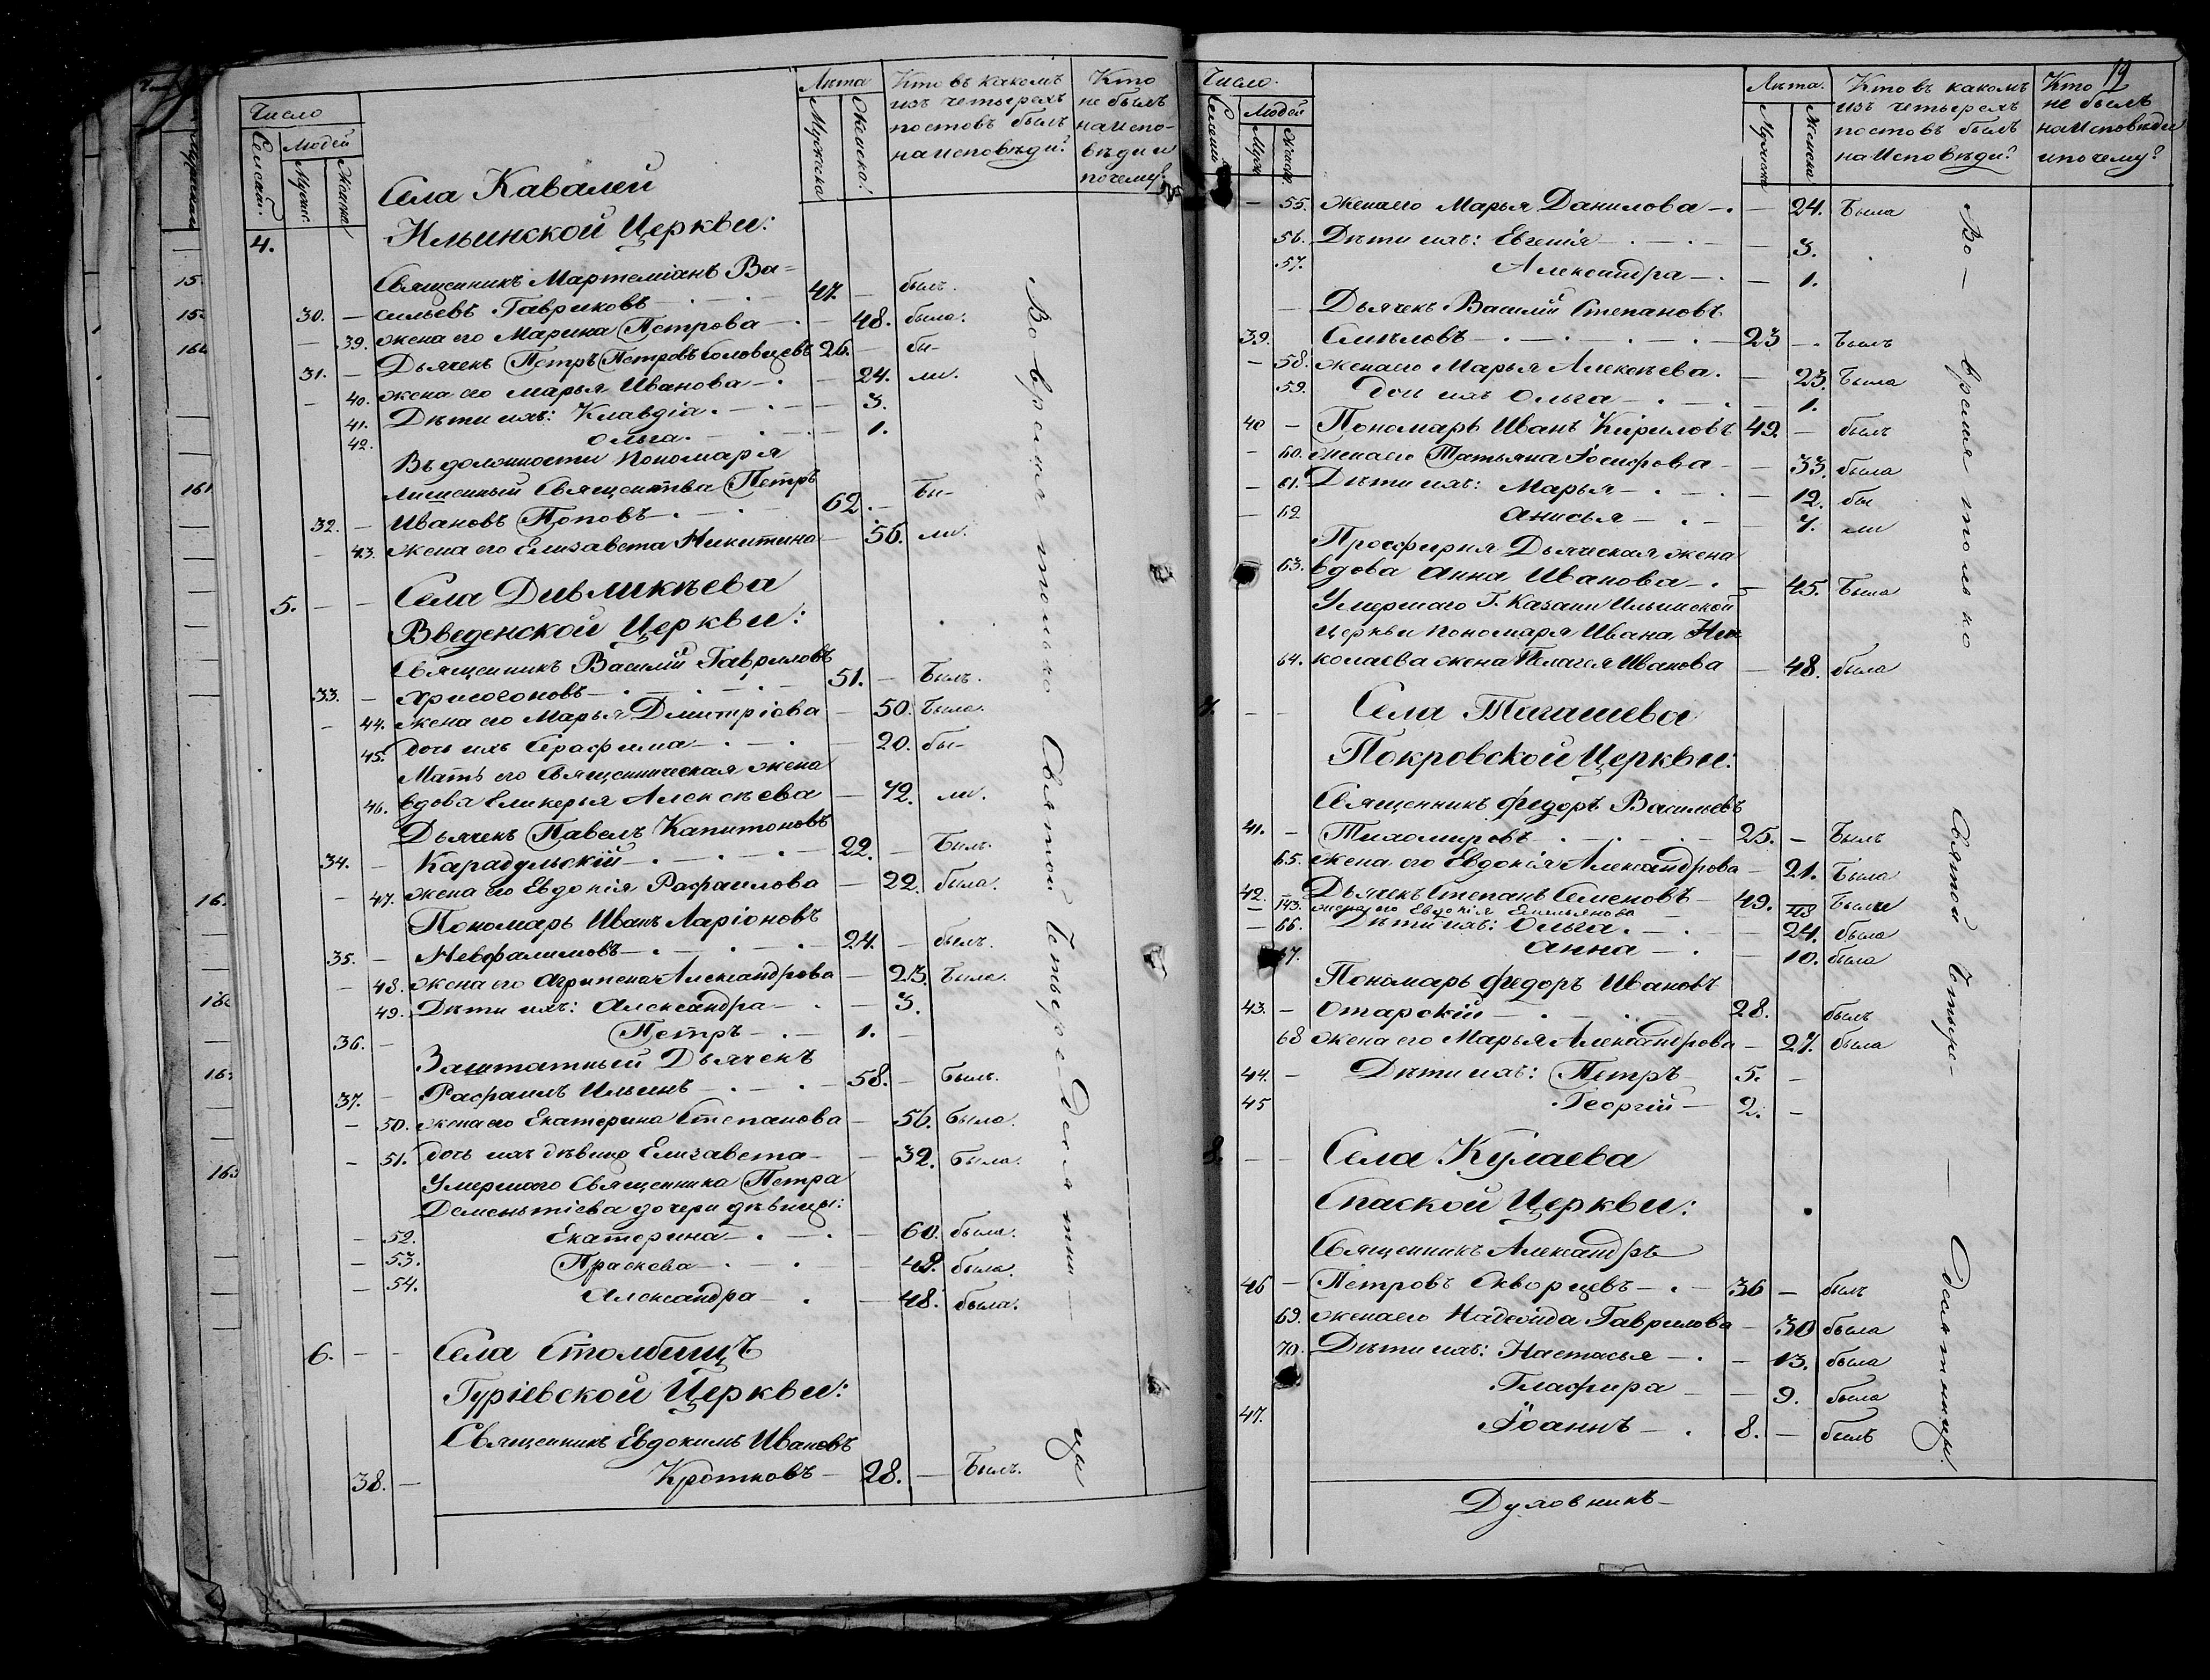 Число
Людей
Мужес.
Женска
Лѣта
Мужеска
Женска.
Кто въ какомъ
изъ четырехъ
постовъ былъ
на исповѣди?
Кто
не былъ
на испо-
вѣди и
почему?
4. Села Кавалей
Ильинской Церкви:
Священникъ Мартеміанъ Ва-
30. — сильевъ Гавриковъ — 47. — былъ.
— 39. жена его Марина Петрова — — 48. была.
31. — Дьячекъ Петръ Петровъ 26. — бы-
— 40. жена его Марья Иванова — — 24. ли.
41. Дѣти ихъ: Клавдія — 3.
42. Ольга. — 1.
Въ должности Пономаря
лишенный Священства Петръ
32. — Ивановъ Поповъ — 62. — Бы-
— 43. жена его Елизавета Никитина — 56. ли.
5. — — Села Дивликѣева
Введенской Церкви:
Священникъ Василій Гавриловъ
33. — Хрисогоновъ — 51. — Былъ.
— 44. жена его Марья Дмитріева — 50. Была.
45. дочь ихъ Серафима — 20. бы-
Мать его Священническая жена
46. вдова Гликерья Алексѣева — 72. ли.
Дьячекъ Павелъ Капитоновъ
34. — Карадульскій — 22. — Былъ.
— 47. жена его Евдокія Рафаилова — 22. была.
Пономарь Иванъ Ларіоновъ
35. — Невфалимовъ — 24. — былъ.
— 48. жена его Агрипена Александрова — 23. Была.
49. Дѣти ихъ: Александра — 3.
36. — Петръ — 1. —
Заштатный Дьячекъ
37. — Рафаилъ Ильинъ — 58. — Былъ.
— 50. жена его Екатерина Степанова — 56. была.
— 51. дочь ихъ дѣвица Елизавета — 32. Была.
Умершаго Священника Петра
Дементіева дочери дѣвицы:
— 52. Екатерина — 60. была.
— 53. Праскева — 49. была.
— 54. Александра — 48. была.
6. — — Села Столбищъ
Гуріевской Церкви:
Священникъ Евдокимъ Ивановъ
38. — Кротковъ — 28. — Былъ.
Во время только Святой Четыре-Десятни-
цы
19
Число.
Людей
Муж
Женс.
Лѣта.
Мужеска
Женска
Кто въ какомъ
изъ четырехъ
постовъ былъ
на Исповѣди?
Кто
не былъ
на Исповѣди
и почему?
— 55. жена его Марья Данилова — — 24. Была
56. Дѣти ихъ: Евгенія — — 3.
57. Александра — — 1.
— Дьячекъ Василій Степановъ
39. Смѣловъ — 23 — Былъ
— 58. жена его Марья Алексѣева. — 23. Была
59. дочь ихъ Ольга — 1.
40 — Пономарь Иванъ Кириловъ 49. — былъ
— 60. жена его Татьяна Іосифова — — 33. была
— 61. Дѣти ихъ: Марья — — 12. бы
— 62 Анисья — — 7. ли
Просфирня Дьяческая жена
63. вдова Анна Иванова — — 45. Была
Умершаго Г. Казани Ильинской
Церкви Пономаря Ивана Ни-
64. колаева жена Пелагея Иванова — 48. была
7. — — Села Тагашева
Покровской Церкви:
Священникъ Федоръ Васильевъ
41. — Тихомировъ — 25. — Былъ
65. жена его Евдокія Александрова — 21. Была
42. Дьячекъ Степанъ Семеновъ — 49. Были
— 143. жена его Евдокія Емельянова 48
— 66. Дѣти ихъ: Ольга. — — 24. была
67. Анна — — 10. была
Пономарь Федоръ Ивановъ
43. — Отарскій — 28. былъ
68 жена его Марья Александрова — 27. была
44. — Дѣти ихъ: Петръ 5. —
45 Георгій — 2. —
8. — — Села Кулаева
Спаской Церкви:
Священникъ Александръ
46 — Петровъ Скворцевъ — 36 — былъ
69. жена его Надежда Гаврилова — 30 была
70. Дѣти ихъ: Настасья — — 13. была
Глафира — — 9. была
47. Іоаннъ — 8. — былъ
Во — время только Святой Четыре- — Десятницы.
Духовникъ —